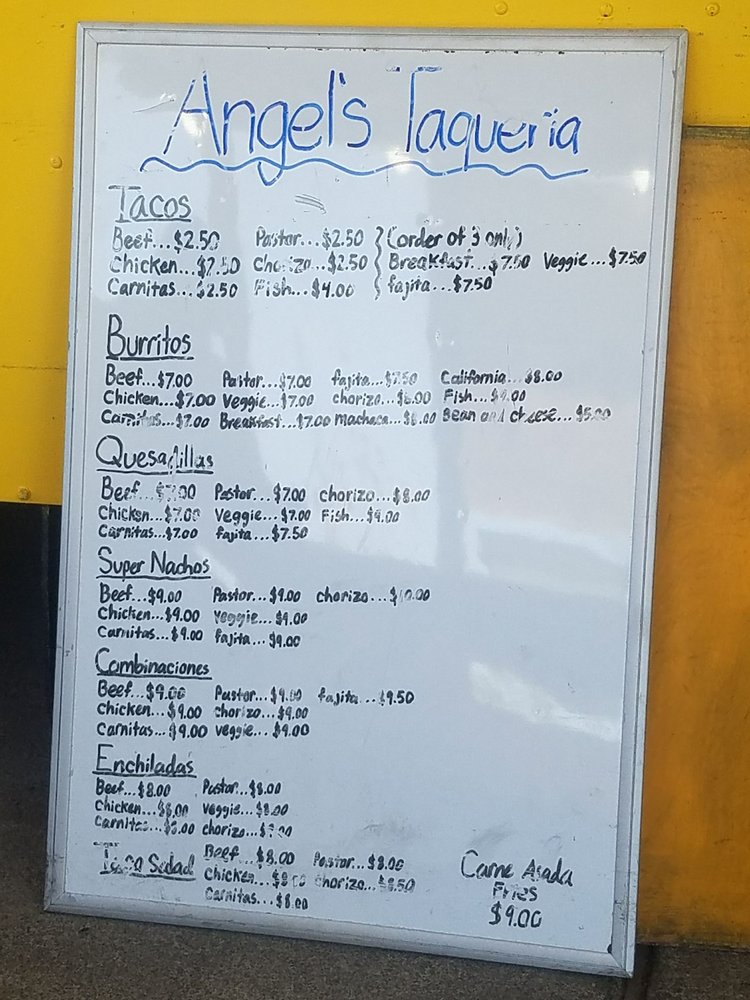 Angel's Taqueria
Tacos
Beef...$2.50 Pastor...$2.50 } (order of 3 only)
Chicken...$2.50 chorizo...$2.50 } Breakfast...$7.50 Veggie...$7.50
Carnitas...$2.50 Fish...$4.00 } fajita...$7.50
Burritos
Beef...$7.00 Pastor...$7.00 fajita...$7.50 California...$8.00
Chicken...$7.00 Veggie...$7.00 chorizo...$8.00 Fish...$9.00
Carnitas...$7.00 Breakfast...$7.00 machaca...$8.00 Bean and cheese...$5.00
Quesadillas
Beef...$7.00 Pastor...$7.00 chorizo...$8.00
Chicken...$7.00 Veggie...$7.00 Fish...$9.00
Carnitas...$7.00 fajita...$7.50
Super Nachos
Beef...$9.00 Pastor...$9.00 chorizo...$10.00
Chicken...$9.00 veggie...$9.00
Carnitas...$9.00 fajita...$9.00
Combinaciones
Beef...$9.00 Pastor...$9.00 fajita...$9.50
Chicken...$9.00 chorizo...$9.00
Carnitas...$9.00 veggie...$9.00
Enchiladas
Beef...$8.00 Pastor...$8.00
Chicken...$8.00 veggie...$8.00
Carnitas...$8.00 chorizo...
Taco Salad Beef...$8.00 Pastor...$8.00
Chicken...$8.00 chorizo...$8.50
Carnitas...$8.00
Carne Asada
Fries
$9.00